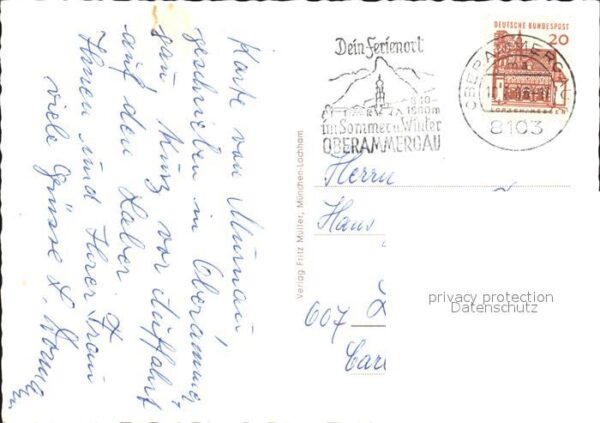 Karte von Murnau,
geschrieben in Oberammer
gau, kurz vor Auffahrt
auf den Laber
Ihnen und Ihrer Frau
viele Grüsse
Dein Ferienort
810-
im Sommer u. Winter
OBERAMMERGAU
DEUTSCHE BUNDESPOST
20
OBERAMMERGAU
8103
Verlag Fritz Müller, München-Lochham
Herrn
Hans
607
privacy protection
Datenschutz